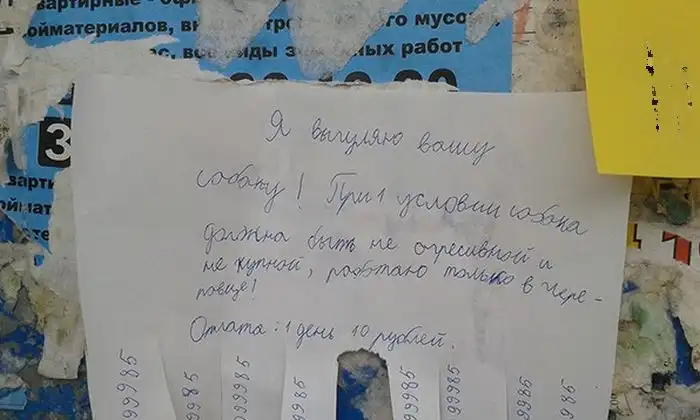 вартирные - оф
ойматериалов, в
го мусо
с, вс
ды з
ных работ
З
варти
оймат
Я выгуляю вашу
собаку! При 1 условии собака
должна быть не огресивной и
не купной, работаю только в чере-
повце!
Оплата: 1 день 10 рублей.
99985
99985
99985
99985
99985
99985
99985
99985